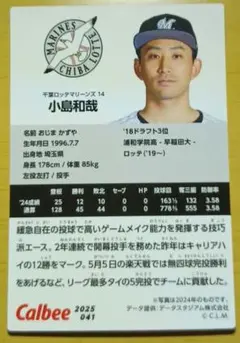 MARINES
CHIBA LOTTE
千葉ロッテマリーンズ 14
小島和哉
名前 おじま かずや
生年月日 1996.7.7
出身地 埼玉県
身長 178cm / 体重 85kg
左投左打 / 投手
'18ドラフト3位
浦和学院高-早稲田大-
ロッテ('19〜)
登板 勝利 敗北 セーブ HP 投球回 奪三振 防御率
'24成績 25 12 10 0 0 163⅓ 132 3.58
通算 128 45 44 0 0 776⅔ 555 3.58
緩急自在の投球で高いゲームメイク能力を発揮する技巧
派エース。2年連続で開幕投手を務めた昨年はキャリアハ
イの12勝をマーク。5月5日の楽天戦では無四球完投勝利
をあげるなど、リーグ最多タイの5完投でチームに貢献した。
Calbee 2025
041
※写真は2024年のものです。
データ提供:データスタジアム株式会社
©C.L.M.